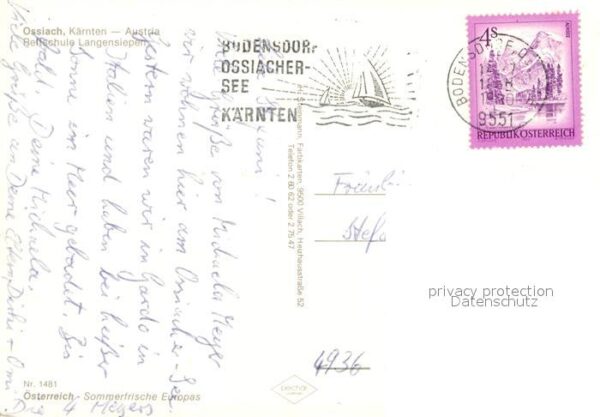 Ossiach, Kärnten — Austria
Reitschule Langensiepen
BODENSDORF
OSSIACHER-
SEE
KÄRNTEN
4S
REPUBLIK ÖSTERREICH
BODENSDORF
9551
Viele Grüße von Michaela Meyer
wir wohnen hier am Ossiacher-See.
Gestern waren wir in Garda in
Italien und haben bei heißer
Sonne im Meer gebadet. Bis
bald, Deine Michaela.
Viele Grüße an Deine Eltern,
+ Omi
Die 4 Meyers
Farbkarten, 9500 Villach, Heuhausstraße 52
Telefon 2 80 62 oder 2 75 47
Fräulei
Stefa
4936
privacy protection
Datenschutz
Nr. 1481
Österreich - Sommerfrische Europas